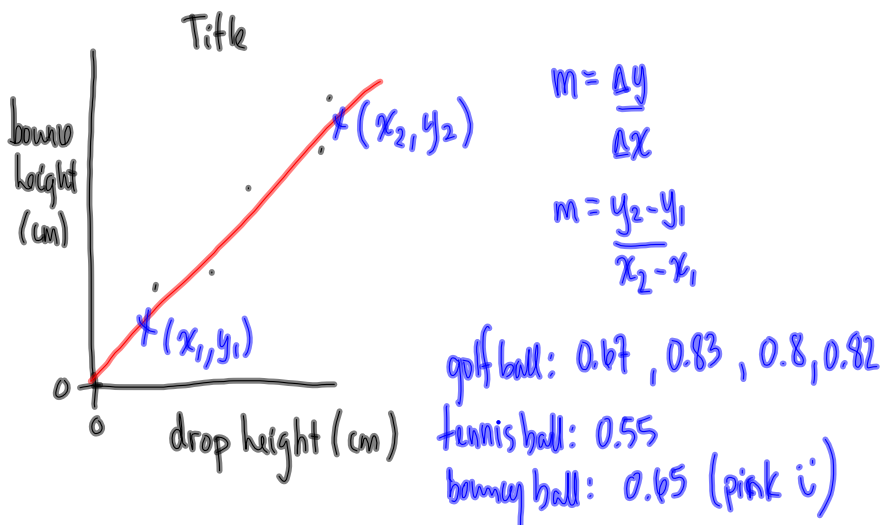 Title
bounce
height
(cm)
(x₂, y₂)
(x₁, y₁)
0
0
drop height (cm)
m = Δy
Δx
m = y₂-y₁
x₂-x₁
golf ball: 0.67, 0.83, 0.8, 0.82
tennis ball: 0.55
bouncy ball: 0.65 (pink ü)